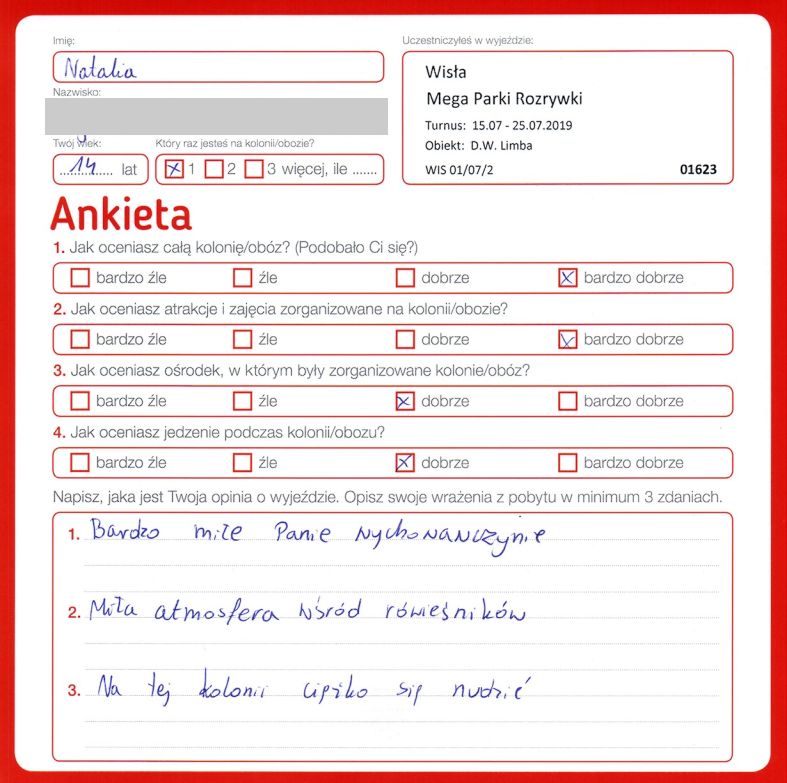 Imię:
Natalia
Nazwisko:
Twój wiek:
14 lat
Który raz jesteś na kolonii/obozie?
1 2 3 więcej, ile .......
Uczestniczyłeś w wyjeździe:
Wisła
Mega Parki Rozrywki
Turnus: 15.07 - 25.07.2019
Obiekt: D.W. Limba
WIS 01/07/2 01623
Ankieta
1. Jak oceniasz całą kolonię/obóz? (Podobało Ci się?)
bardzo źle źle dobrze bardzo dobrze
2. Jak oceniasz atrakcje i zajęcia zorganizowane na kolonii/obozie?
bardzo źle źle dobrze bardzo dobrze
3. Jak oceniasz ośrodek, w którym były zorganizowane kolonie/obóz?
bardzo źle źle dobrze bardzo dobrze
4. Jak oceniasz jedzenie podczas kolonii/obozu?
bardzo źle źle dobrze bardzo dobrze
Napisz, jaka jest Twoja opinia o wyjeździe. Opisz swoje wrażenia z pobytu w minimum 3 zdaniach.
1. Bardzo miłe Panie wychowawczynie
2. Miła atmosfera wśród rówieśników
3. Na tej kolonii ciężko się nudzić